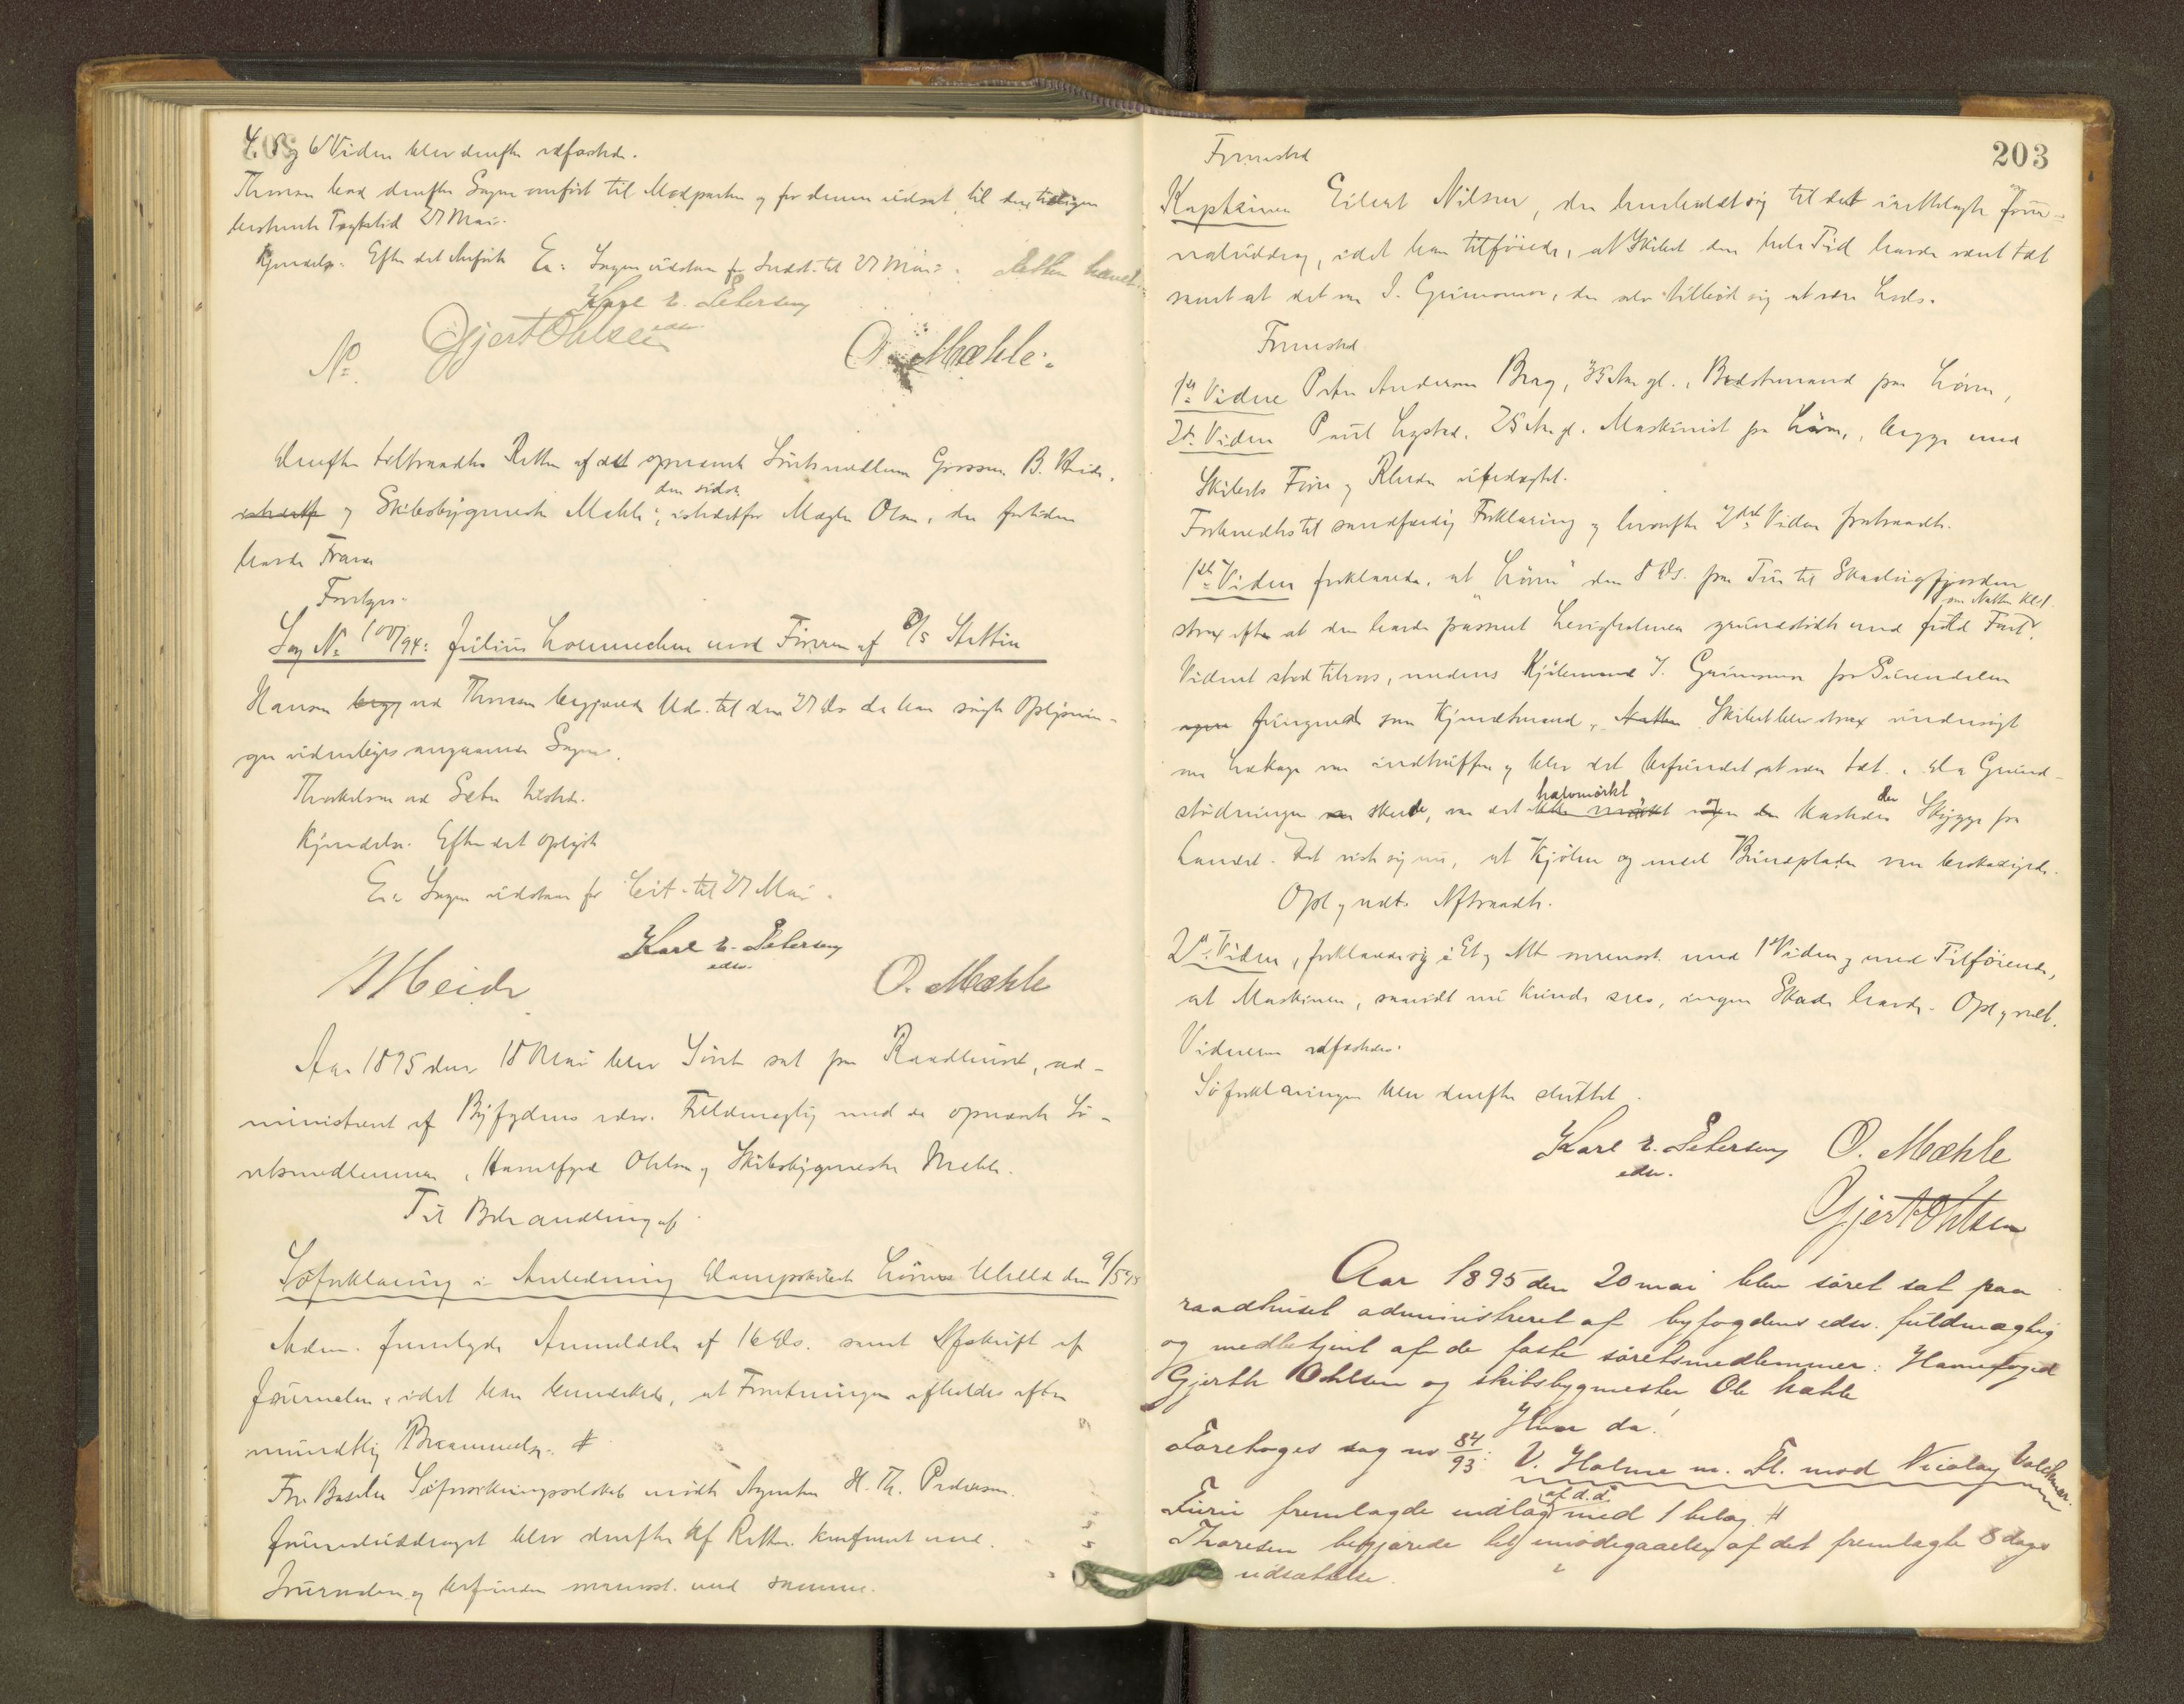 4, 5 og 6 Vidne blev derefter edfæstede.
Thoresen bad derefter Sagen anført til Modparten og for denne udsat til den tidligere
berammede Tægtetid 27 Mai.
Kjendelse. Efter det Anførte Er: Sagen udstaar for Indst. til 27 Mai. Retten hævet.
Karl v. Petersen
edsv.
Gjert Ohlsen
O. Mæhle.
No.
Derefter tiltraadtes Retten af det opnævnte Søretsmedlem Grosserer B. Heide
istedetfor og Skibsbygmester Mæhle, den sidste istedetfor Mægler Olsen, der fortiden
havde Fravær
Foretoges.
Sag No 100/94: Julius Lommechen mod Føreren af D/S Stettin
Hansen begj ved Thoresen begjærede Uds. til den 27 ds da han søgte Oplysnin-
ger videreligere angaaende Sagen.
Thorkelsen ved Sæter tilstede.
Kjendelse. Efter det oplyste
Er: Sagen udstaar for Cit. til 27 Mai.
Karl v. Petersen
edsv.
B Heide
O. Mæhle
Aar 1895 den 18 Mai blev Søret sat paa Raadhuset, ad-
ministreret af Byfogdens edsv. Fuldmægtig med de opnævnte Sø-
retsmedlemmer, Havnefoged Ohlsen og Skibsbygmester Mæhle.
Til Behandling af
Søforklaring i Anledning Dampskibet Løvens Uheld den 9/5 95
Adm. fremlagde Anmeldelse af 16 ds. samt Afskrift af
Journalen, idet han bemærkede, at Forretningen afholdes efter
mundtlig Berammelse. #
For Baseler Søforsikringsselskab mødte Agenten H. Th. Pedersen.
Journaluddraget blev derefter af Retten konfereret med
Journalen og befunden overensst. med samme.
203
Fremstod
Kaptainen Eilert Nilsen, der henholdt sig til det irettelagte Jour-
naluddrag, idet han tilføiede, at Skibet den hele Tid havde været tæt
samt at det var I. Grimsmo, der selv tilbød sig at være Lods.
Fremstod
1ste Vidne Peter Andersen Berg, 35 Aar gl., Bedstemand paa Løven,
2det Vidne Paul Lystad, 25 Aar gl. Maskinist paa Løven, begge med
Skibets Fører og Rheder ubeslægtet.
Formanedes til sandfærdig Forklaring og hvorefter 2det Vidne fratraadte.
1ste Vidne forklarede, at "Løven" den 8 ds. fra Tui til Skaalvigfjorden
strax efter at den havde passeret Levigholmen grundstødte med fuld Fart, om Natten Kl. 1.
Vidnet stod tilrors, medens Kjølemand I. Grimsmo fra Surendalen
fungerede som Kjendtmand. Skibet blev strax undersøgt
om Lækage var indtruffen og blev det befundet at være tæt. Da Grund-
stødningen skede, var det halvmørkt og der kastedes Skygge fra
Landet. Det viste sig nu, at Kjølen og endel Bundplader var beskadigede.
Opl. og vedt. Aftraadte.
2det Vidne, forklarede sig i Et og Alt overensst. med 1ste Vidne og med Tilføiende,
at Maskinen, saavidt nu kunde sees, ingen Skade havde. Opl. og vedt.
Vidnerne edfæstedes.
Søforklaringen blev derefter sluttet.
Karl v. Petersen O. Mæhle
edsv.
Gjert Ohlsen
Aar 1895 den 20 mai blev søret sat paa
raadhuset administreret af byfogdens edsv. fuldmægtig
og medbetjent af de faste søretsmedlemmer: Havnefoged
Gjerth Ohlsen og skibsbygmester Ole Mæhle
Hvor da!
Foretoges sag no 84/93: V. Holme m. Fl. mod Nicolay Valdemar.
Furu fremlagde indlæg af d.d. med 1 bilag. #
Thoresen begjærede til imødegaaelse af det fremlagte 8 dages
udsættelse.